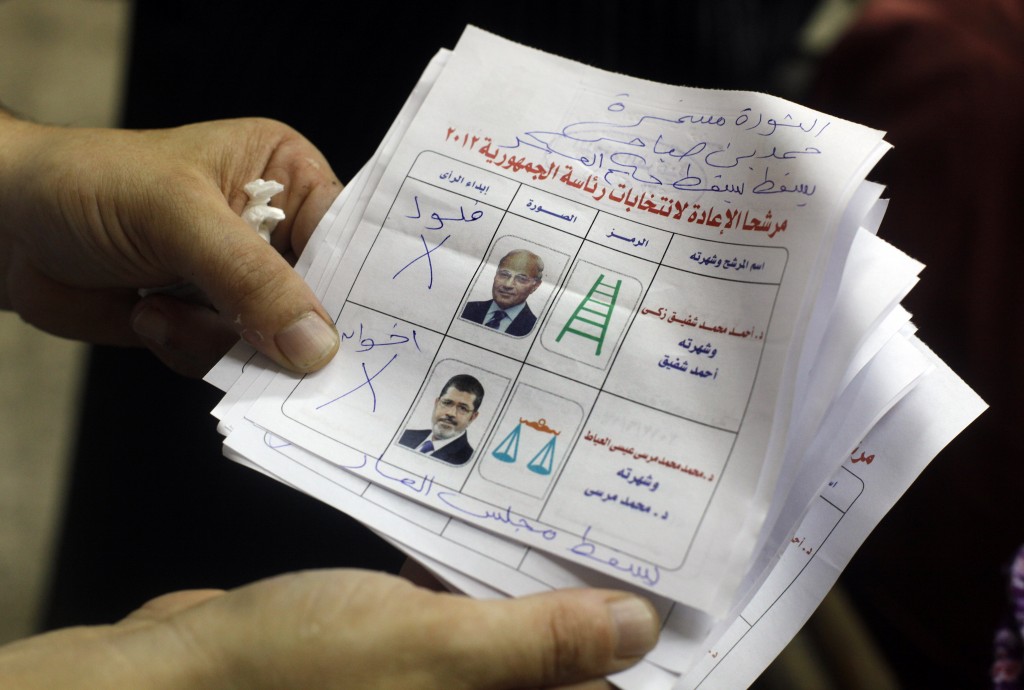 الثورة مستمرة
حمدين صباحي
يسقط يسقط حكم العسكر
مرشحا الإعادة لانتخابات رئاسة الجمهورية ٢٠١٢
اسم المرشح وشهرته
الرمز
الصورة
إبداء الرأى
د. أحمد محمد شفيق زكى
وشهرته
أحمد شفيق
فلول
X
د. محمد محمد مرسى عيسى العياط
وشهرته
د. محمد مرسى
اخوان
X
يسقط مجلس العار